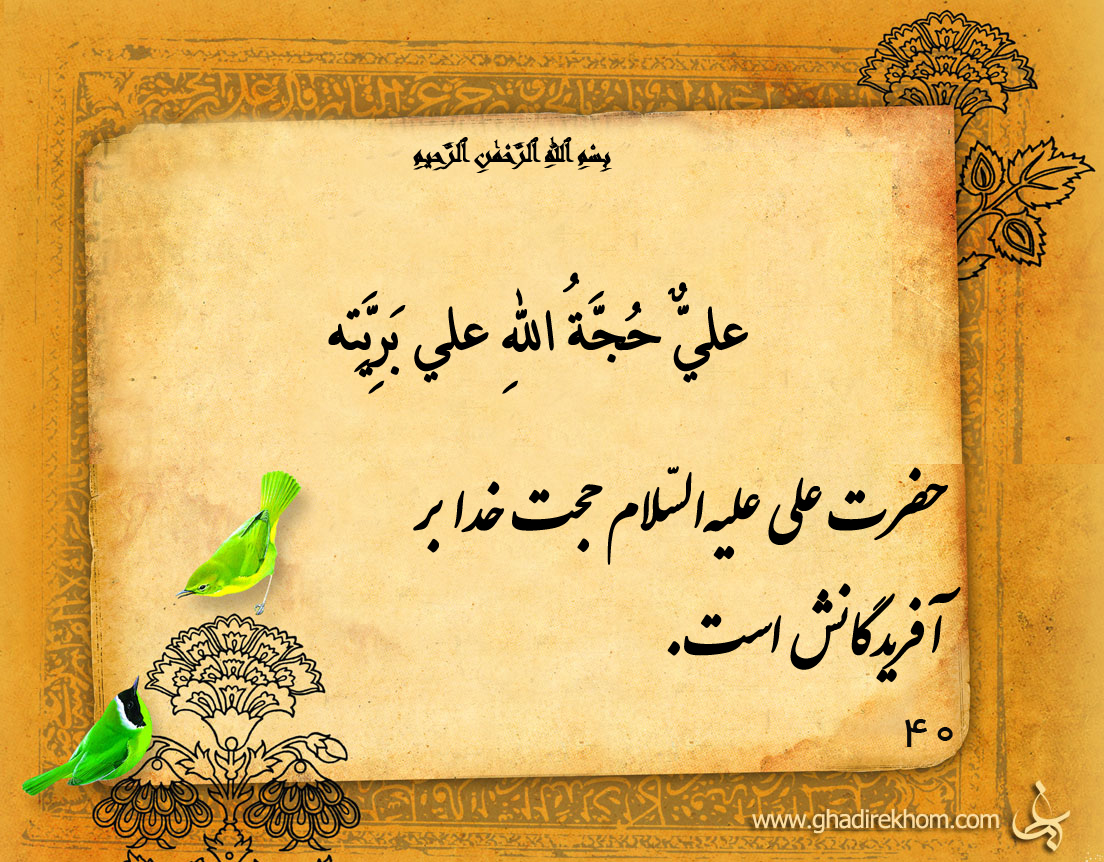 بِسْمِ ٱللَّهِ ٱلرَّحْمَٰنِ ٱلرَّحِيمِ
عليٌّ حُجَّةُ اللهِ علي بَرِيَّتِه
حضرت علی علیه‌السّلام حجت خدا بر
آفریدگانش است.
۴۰
www.ghadirekhom.com